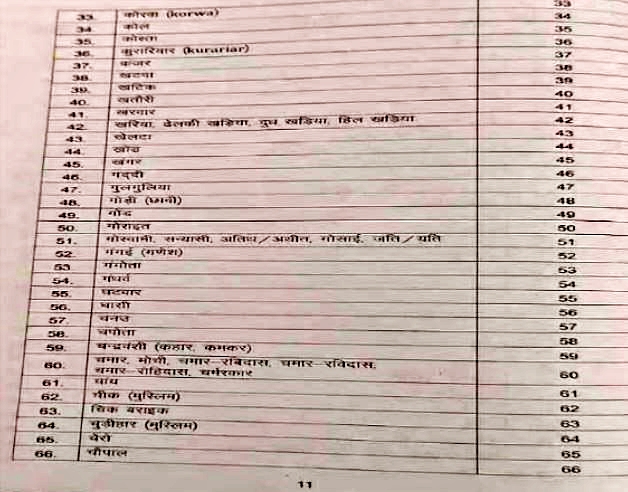 33
33. कोरवा (korwa) 34
34. कोल 35
35. कोस्ता 36
36. कुरारियार (kurariar) 37
37. कंजर 38
38. खटवा 39
39. खटिक 40
40. खतौरी 41
41. खरवार 42
42. खरिया, ढेलकी खड़िया, दुध खड़िया, हिल खड़िया 43
43. खेलटा 44
44. खोंड 45
45. खंगर 46
46. गद्दी 47
47. गुलगुलिया 48
48. गोड़ी (छावी) 49
49. गोंड 50
50. गोराइत 51
51. गोस्वामी, सन्यासी, अतिथ/अथीत, गोसाई, जति/यति 52
52. गंगई (गणेश) 53
53. गंगोता 54
54. गंधर्व 55
55. घटवार 56
56. घासी 57
57. चनउ 58
58. चपोता 59
59. चन्द्रवंशी (कहार, कमकर)
60. चमार, मोची, चमार-रबिदास, चमार-रविदास, 60
चमार-रोहिदास, चर्मरकार
61. चांय 61
62. चीक (मुस्लिम) 62
63. चिक बराइक 63
64. चुड़ीहार (मुस्लिम) 64
65. चेरो 65
66. चौपाल 66
11